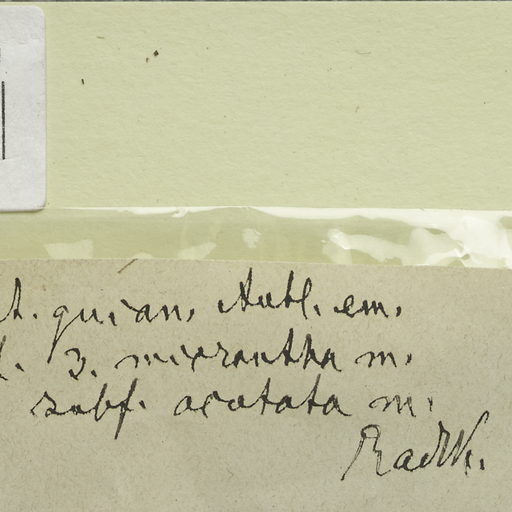 t. guian. Aubl. em.
l. 3. micrantha m.
subf. acutata m.
Radlk.